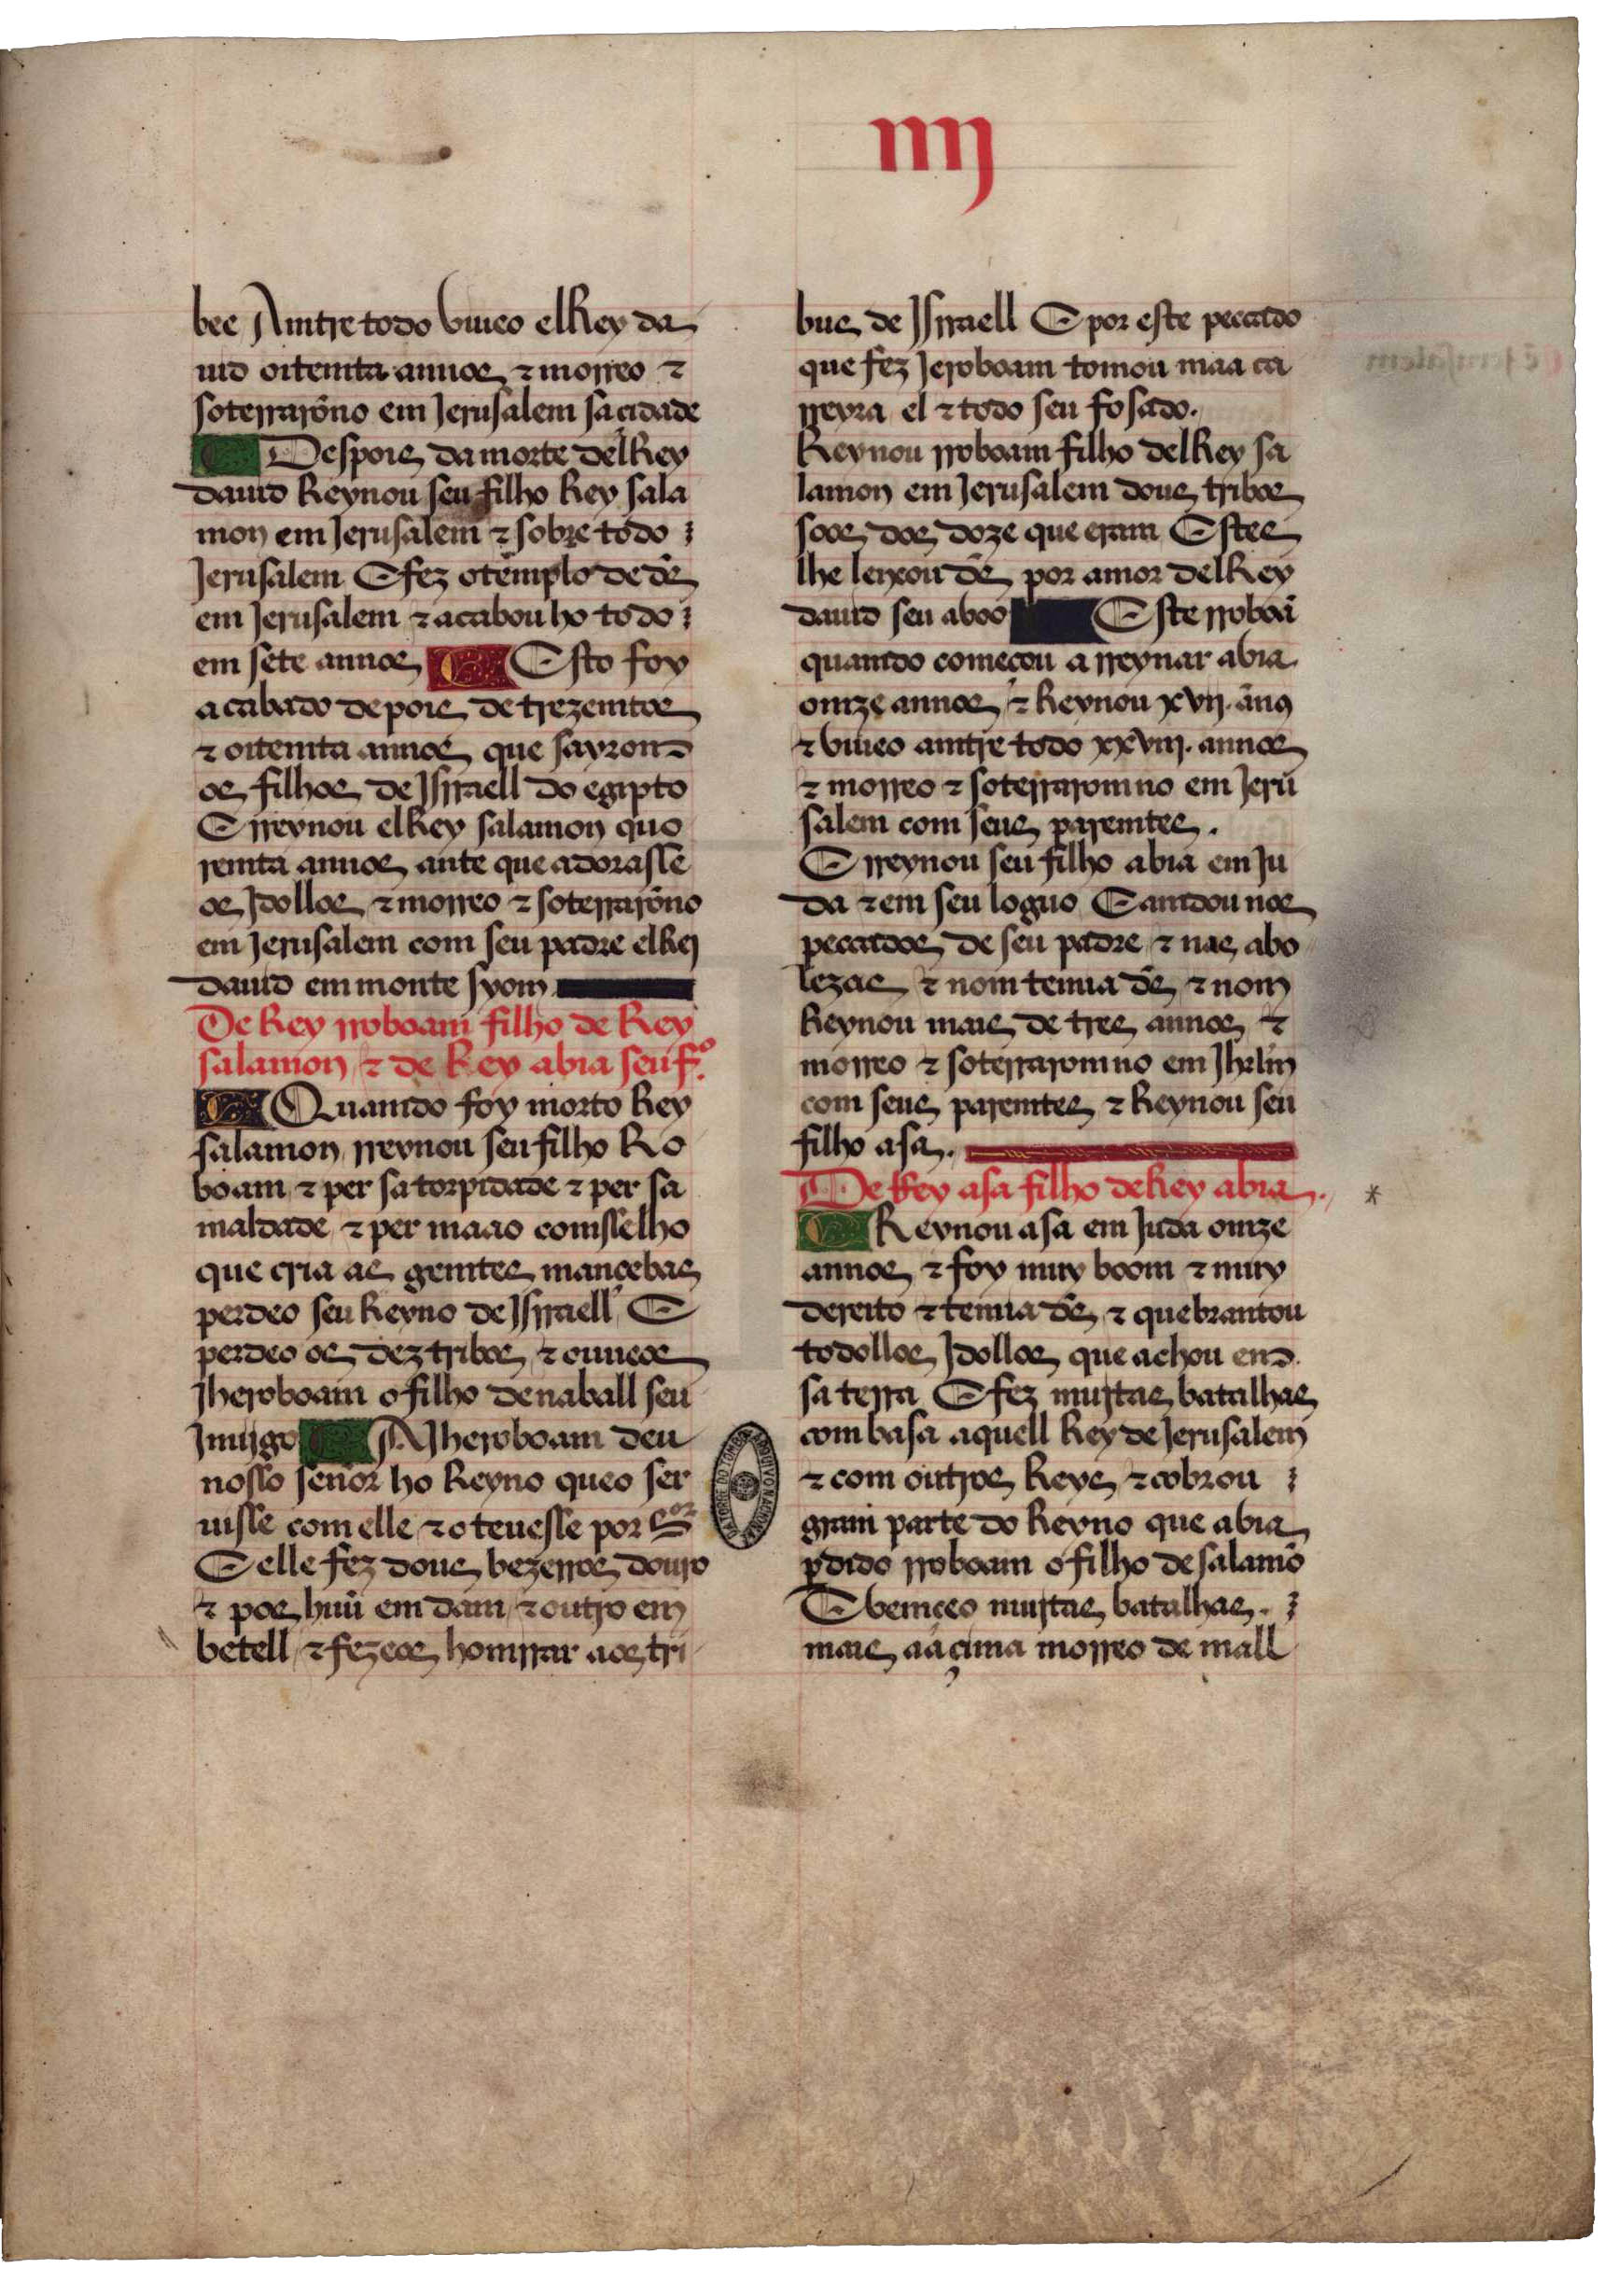 iiij
bee Amtre todo viueo elRey da
uid oitemta annos ⁊ morreo ⁊
soterrarõno em Jerusalem sa cidade
Despois da morte delRey
dauid Reynou seu filho Rey sala
mon em Jerusalem ⁊ sobre todo
Jerusalem E fez o templo de ds̃
em Jerusalem ⁊ acabou ho todo
em sete annos Esto foy
acabado depois de trezemtos
⁊ oitemta annos que sayrom
os filhos de Jsrraell do egipto
E rreynou elRey salamon quo
remta annos ante que adorasse
os Jdollos ⁊ morreo ⁊ soterrarõno
em Jerusalem com seu padre elRej
dauid em monte syom
De Rey rroboam filho de Rey
salamon ⁊ de Rey abia seu f.º
Quamdo foy morto Rey
salamon rreynou seu filho Ro
boam ⁊ per sa torpidade ⁊ per sa
maldade ⁊ per maao comsselho
que cria as gemtes mancebas
perdeo seu Reyno de Jsrraell E
perdeo os dez tribos ⁊ ouueos
Jheroboam o filho de naball seu
Jmijgo A Jheroboam deu
nosso senor ho Reyno que o ser
uisse com elle ⁊ o teuesse por sor
E elle fez dous bezerros douro
⁊ pos huũ em dam ⁊ outro em
betell ⁊ fezeos homrrar aos tri
bus de Jsrraell E por este peccado
que fez Jeroboam tomou maa ca
rreyra el ⁊ todo seu fosado.
Reynou rroboam filho delRey sa
lamon em Jerusalem dous tribos
soos dos doze que eram Estes
lhe leixou ds̃ por amor delRey
dauid seu aboo Este rroboã
quamdo começou a rreynar abia
omze annos ⁊ Reynou xvij. ãnos
⁊ viueo amtre todo xxviij. annos
⁊ morreo ⁊ soterraromno em Jeru
salem com seus paremtes.
E rreynou seu filho abia em Ju
da ⁊ em seu loguo E amdou nos
peccados de seu padre ⁊ nas abo
lezas ⁊ nom temia ds̃ ⁊ nom
Reynou mais de tres annos ⁊
morreo ⁊ soterraromno em Jhrlm̃
com seus paremtes ⁊ Reynou seu
filho asa.
De Rey asa filho de Rey abia.
*
Reynou asa em Juda omze
annos ⁊ foy muy boom ⁊ muy
dereito ⁊ temia ds̃ ⁊ quebrantou
todollos Jdollos que achou em
sa terra E fez mujtas batalhas
com basa aquell Rey de Jerusalem
⁊ com outros Reys ⁊ cobrou
gram parte do Reyno que abia
p̱dido rroboam o filho de salamõ
E vemçeo mujtas batalhas.
mais aaçima morreo de mall